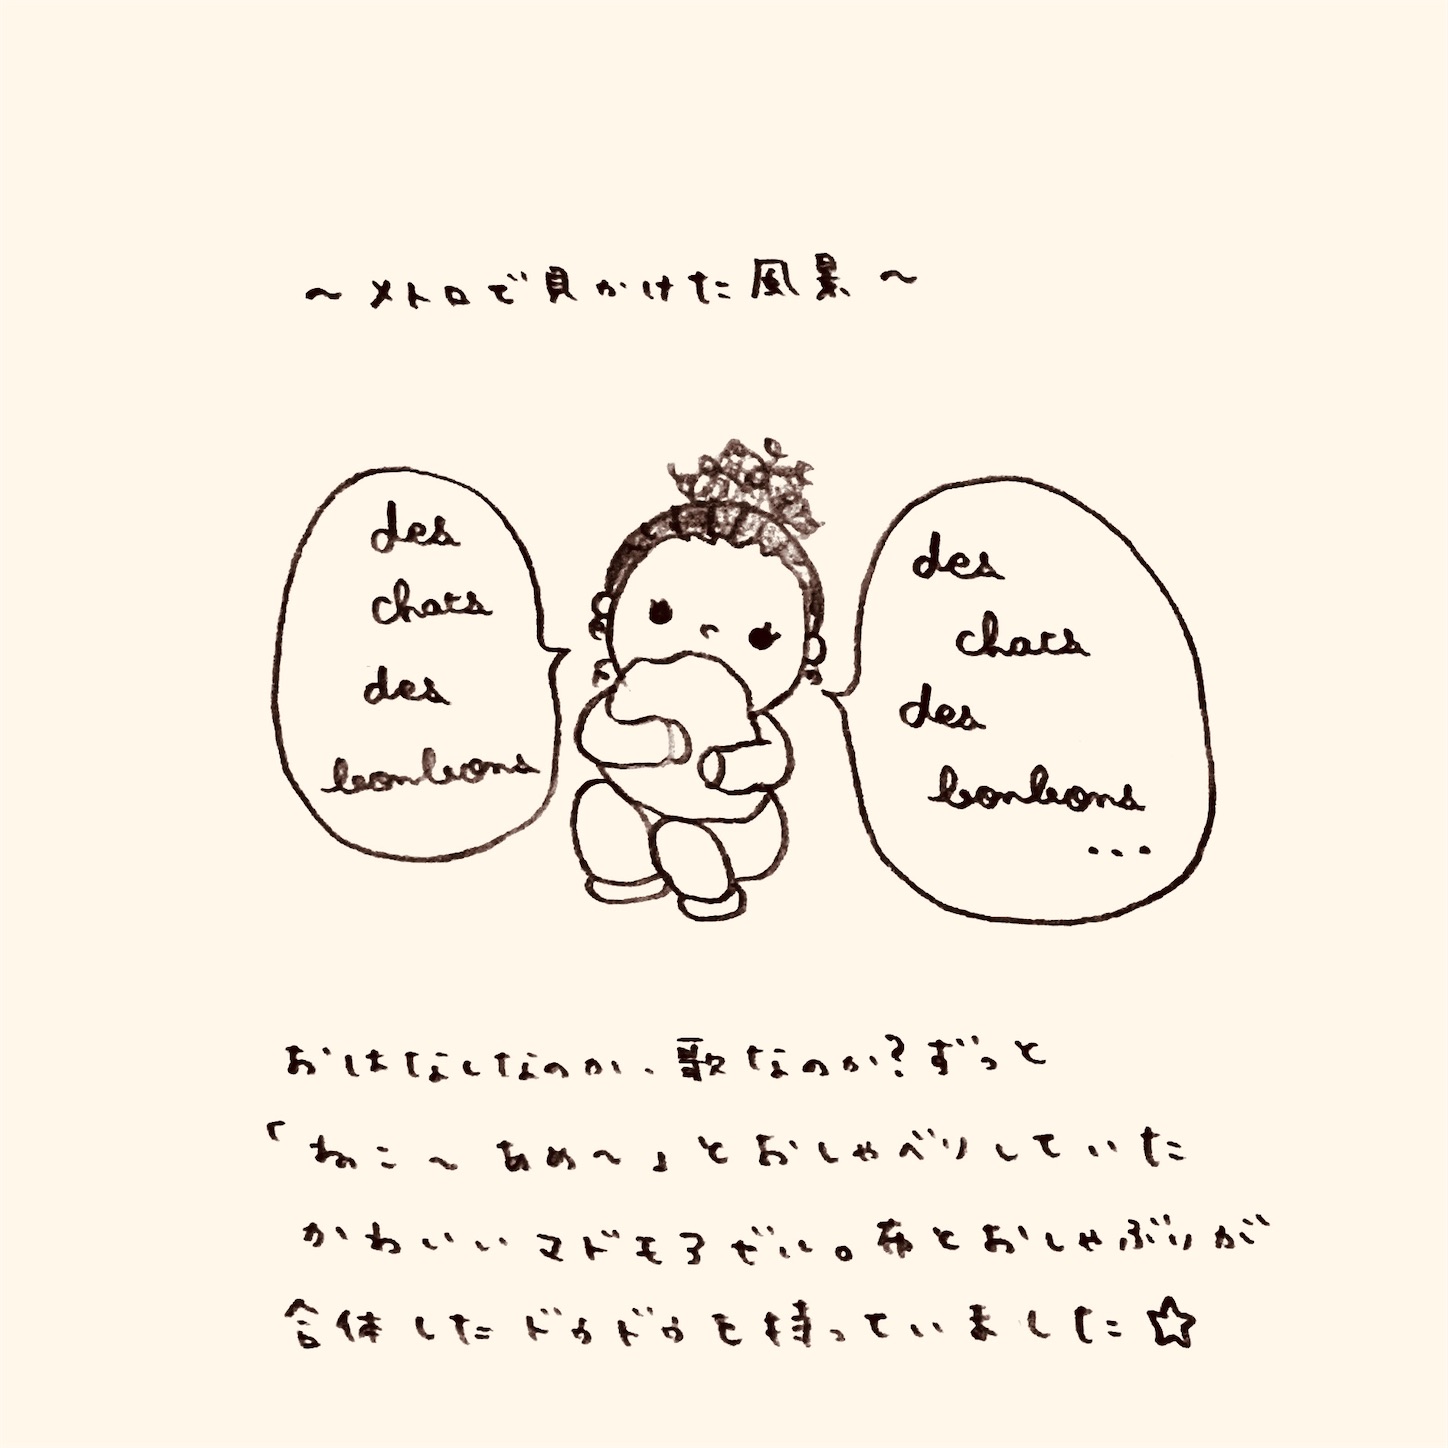 〜メトロで見かけた風景〜
des
chats
des
bonbons
des
chats
des
bonbons
...
おはなしなのか、歌なのか?ずっと
「ねこ〜あめ〜」とおしゃべりしていた
かわいいマドモアゼル。布とおしゃぶりが
合体したドゥドゥを持っていました☆